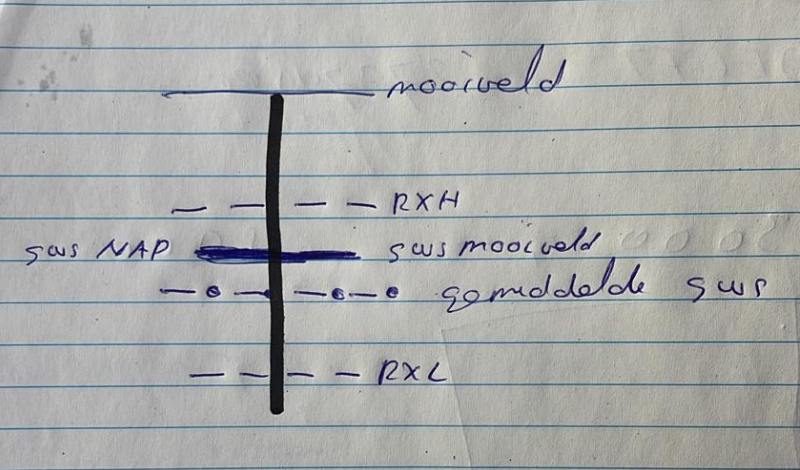 mooiveld
RXH
gws NAP gws mooiveld
gemiddelde gws
RXL